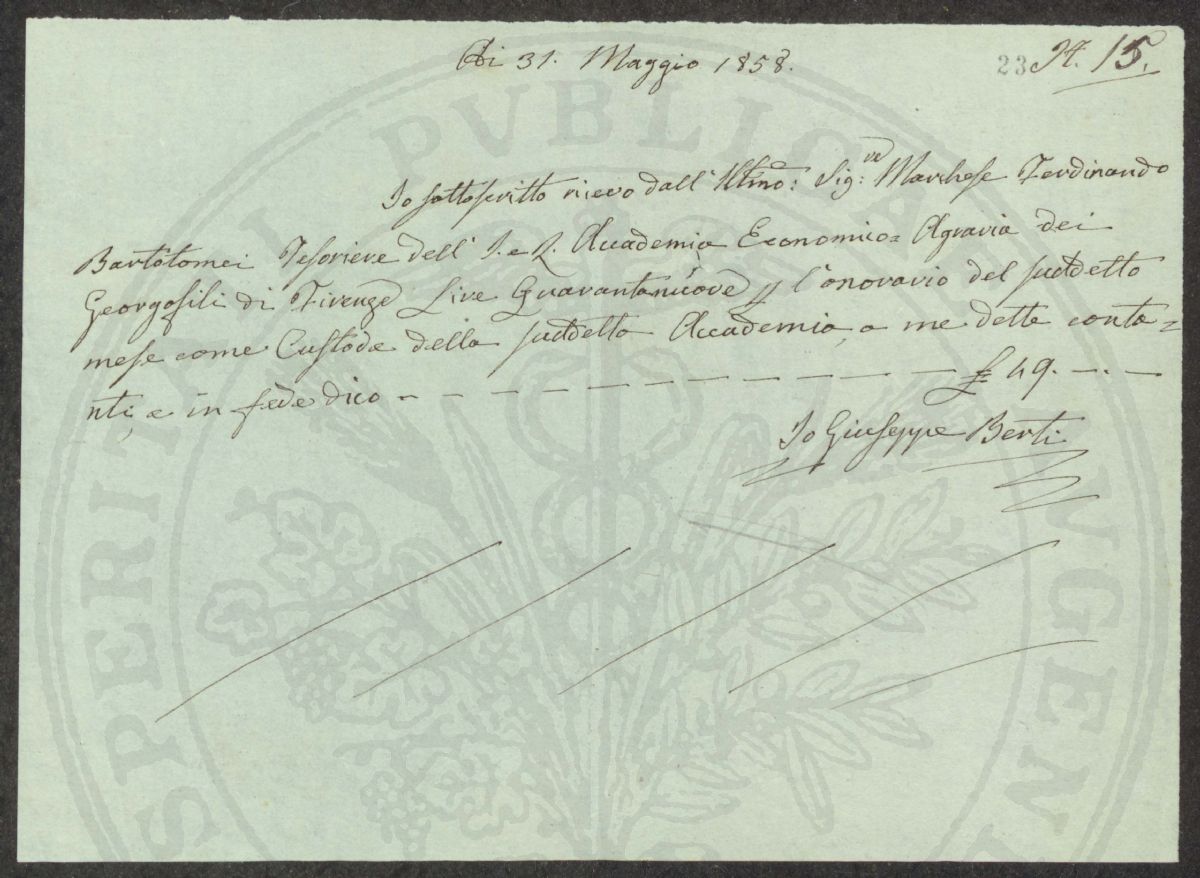 Adi 31. Maggio 1858.
23 N. 15.
Io sottoscritto ricevo dall' Illmo: Sig:re Marchese Ferdinando
Bartolomei Tesoriere dell' I. e R. Accademia Economico= Agraria dei
Georgofili di Firenze Lire Quarantanuove p l'onorario del suddetto
mese come Custode della suddetta Accademia, a me dette conta=
nti, e in fede dico - - - - - - - - - - - £ 49. -.-
Io Giuseppe Berti
PROSPERITATI PVBLICAE AVGENDAE